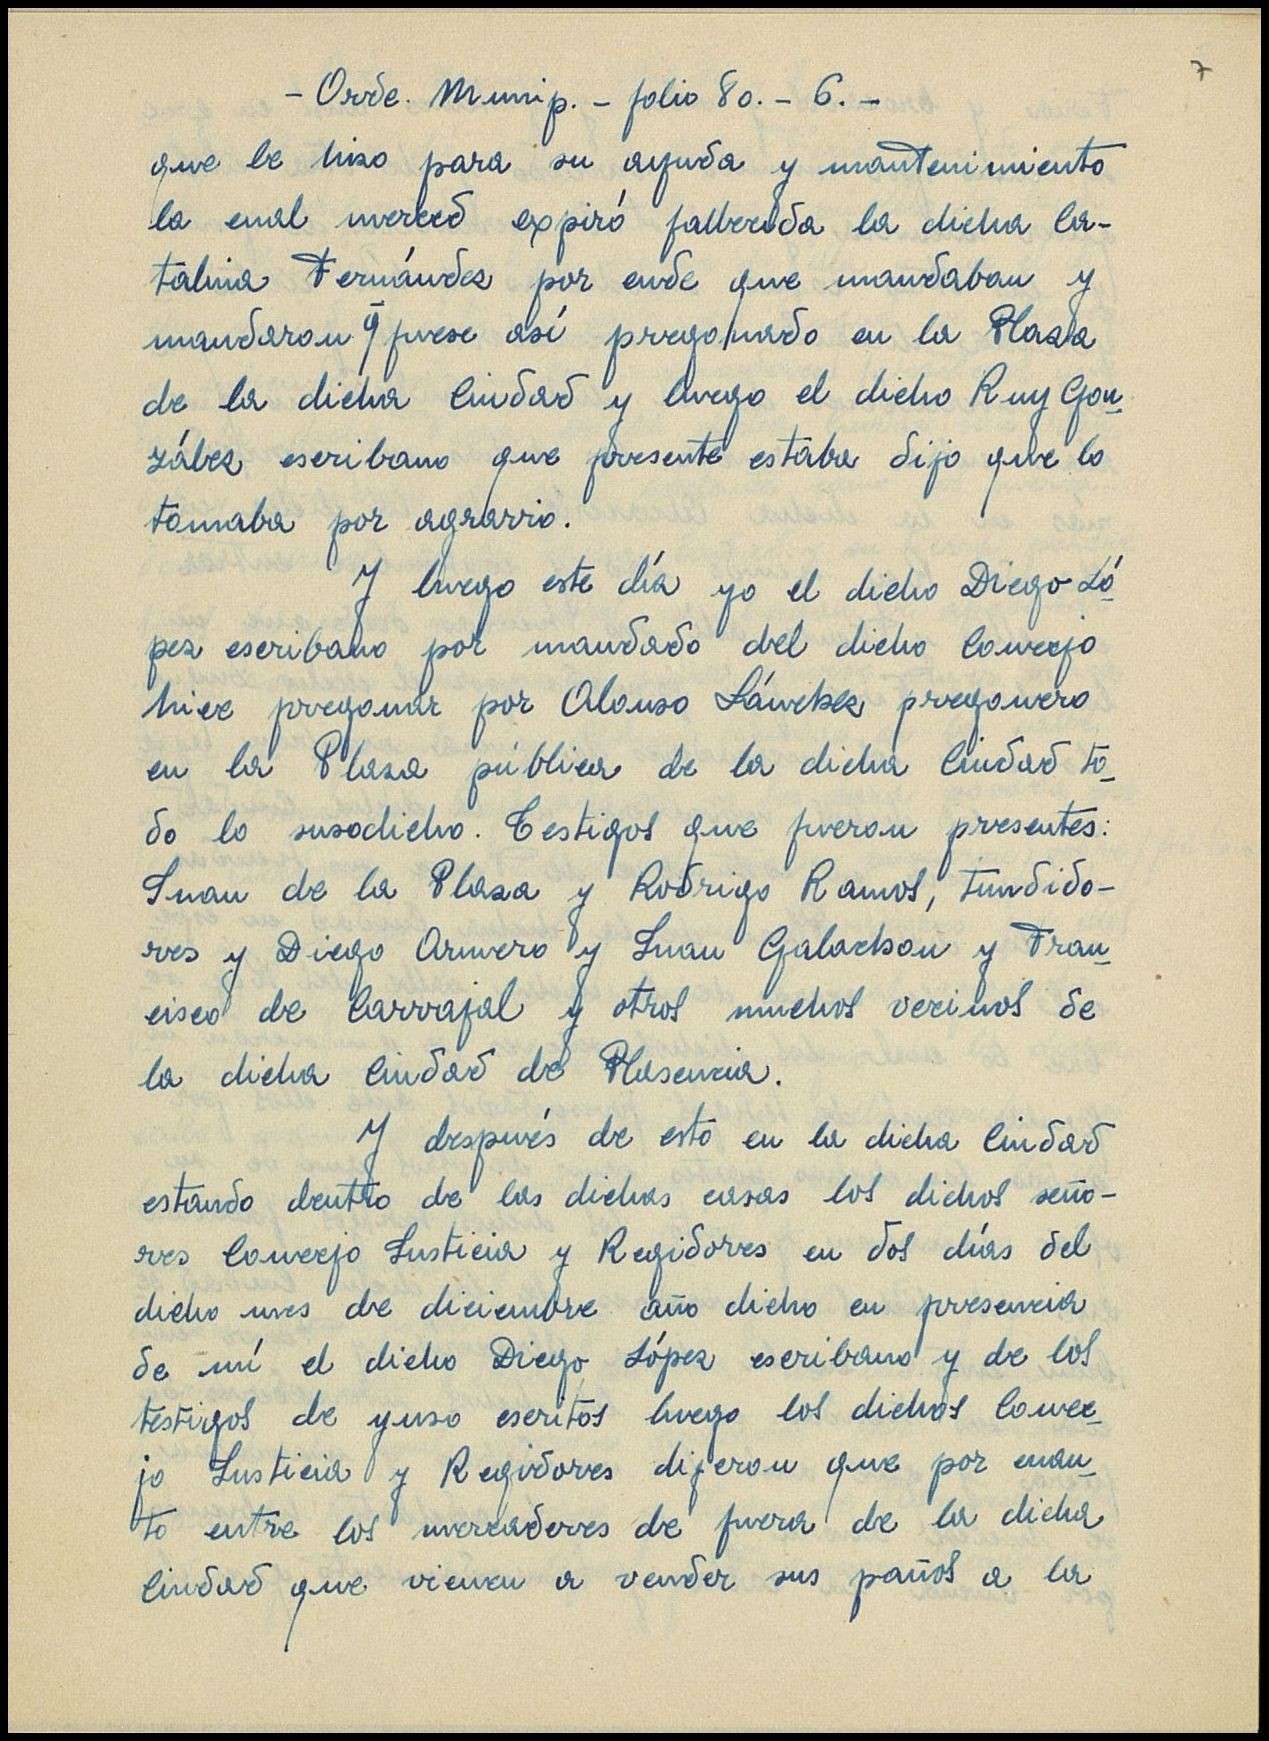 7
- Orde. Munip. - folio 80. - 6. -
que le hizo para su ayuda y mantenimiento
la cual merced expiró fallecida la dicha Ca-
talina Fernández por ende que mandaban y
mandaron q̄ fuese así pregonado en la Plaza
de la dicha Ciudad y luego el dicho Ruy Gon-
zález escribano que presente estaba dijo que lo
tomaba por agravio.
Y luego este día yo el dicho Diego Ló-
pez escribano por mandado del dicho Concejo
hice pregonar por Alonso Sánchez pregonero
en la Plaza pública de la dicha Ciudad to-
do lo susodicho. Testigos que fueron presentes:
Juan de la Plaza y Rodrigo Ramos, tundido-
res y Diego Armero y Juan Galachon y Fran-
cisco de Carvajal y otros muchos vecinos de
la dicha Ciudad de Plasencia.
Y después de esto en la dicha Ciudad
estando dentro de las dichas casas los dichos seño-
res Concejo Justicia y Regidores en dos días del
dicho mes de diciembre año dicho en presencia
de mí el dicho Diego López escribano y de los
testigos de yuso escritos luego los dichos Conce-
jo Justicia y Regidores dijeron que por cuan-
to entre los mercaderes de fuera de la dicha
Ciudad que vienen a vender sus paños a la